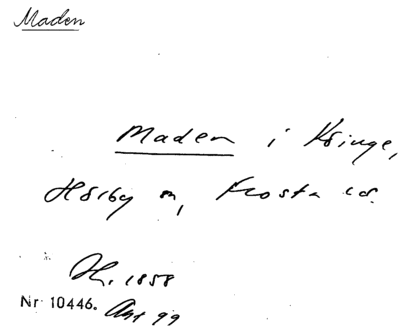 Maden
Maden i Kringe,
Hörby sn, Frosta hd.
H. 1858
Nr 10446. Akt 99